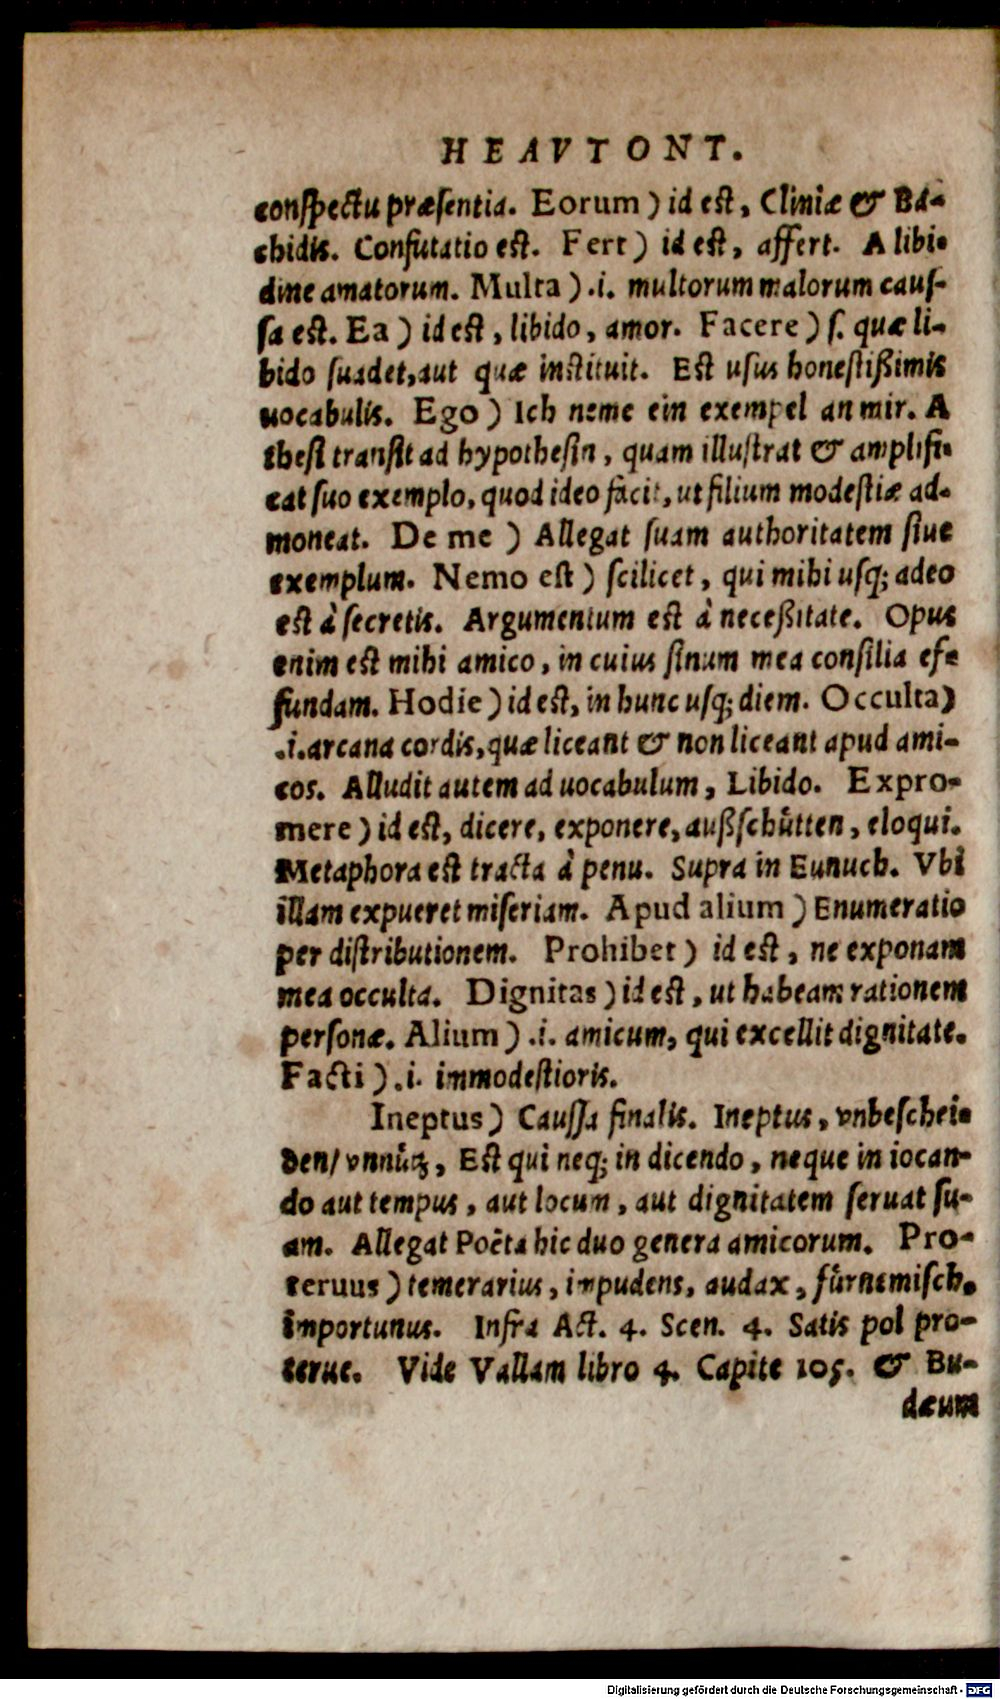 HEAVTONT.
conspectu præsentia. Eorum) id est, Cliniæ & Ba-
chidis. Confutatio est. Fert) id est, affert. A libi-
dine amatorum. Multa) .i. multorum malorum caus-
sa est. Ea) id est, libido, amor. Facere) s. quæ li-
bido suadet, aut quæ instituit. Est usus honestißimis
uocabulis. Ego) Ich neme ein exempel an mir. A
thesi transit ad hypothesin, quam illustrat & amplifi-
cat suo exemplo, quod ideo facit, ut filium modestiæ ad-
moneat. De me) Allegat suam authoritatem siue
exemplum. Nemo est) scilicet, qui mihi usq; adeo
est à secretis. Argumentum est à neceßitate. Opus
enim est mihi amico, in cuius sinum mea consilia ef-
fundam. Hodie) id est, in hunc usq; diem. Occulta)
.i. arcana cordis, quæ liceant & non liceant apud ami-
cos. Alludit autem ad uocabulum, Libido. Expro-
mere) id est, dicere, exponere, außschütten, eloqui.
Metaphora est tracta à penu. Supra in Eunuch. Vbi
illam expueret miseriam. Apud alium) Enumeratio
per distributionem. Prohibet) id est, ne exponam
mea occulta. Dignitas) id est, ut habeam rationem
personæ. Alium) .i. amicum, qui excellit dignitate.
Facti) .i. immodestioris.
Ineptus) Caussa finalis. Ineptus, vnbeschei-
den/ vnnütz, Est qui neq; in dicendo, neque in iocan-
do aut tempus, aut locum, aut dignitatem seruat su-
am. Allegat Poëta hic duo genera amicorum. Pro-
teruus) temerarius, impudens, audax, fürnemisch.
importunus. Infra Act. 4. Scen. 4. Satis pol pro-
terue. Vide Vallam libro 4. Capite 105. & Bu-
dæum
Digitalisierung gefördert durch die Deutsche Forschungsgemeinschaft - DFG